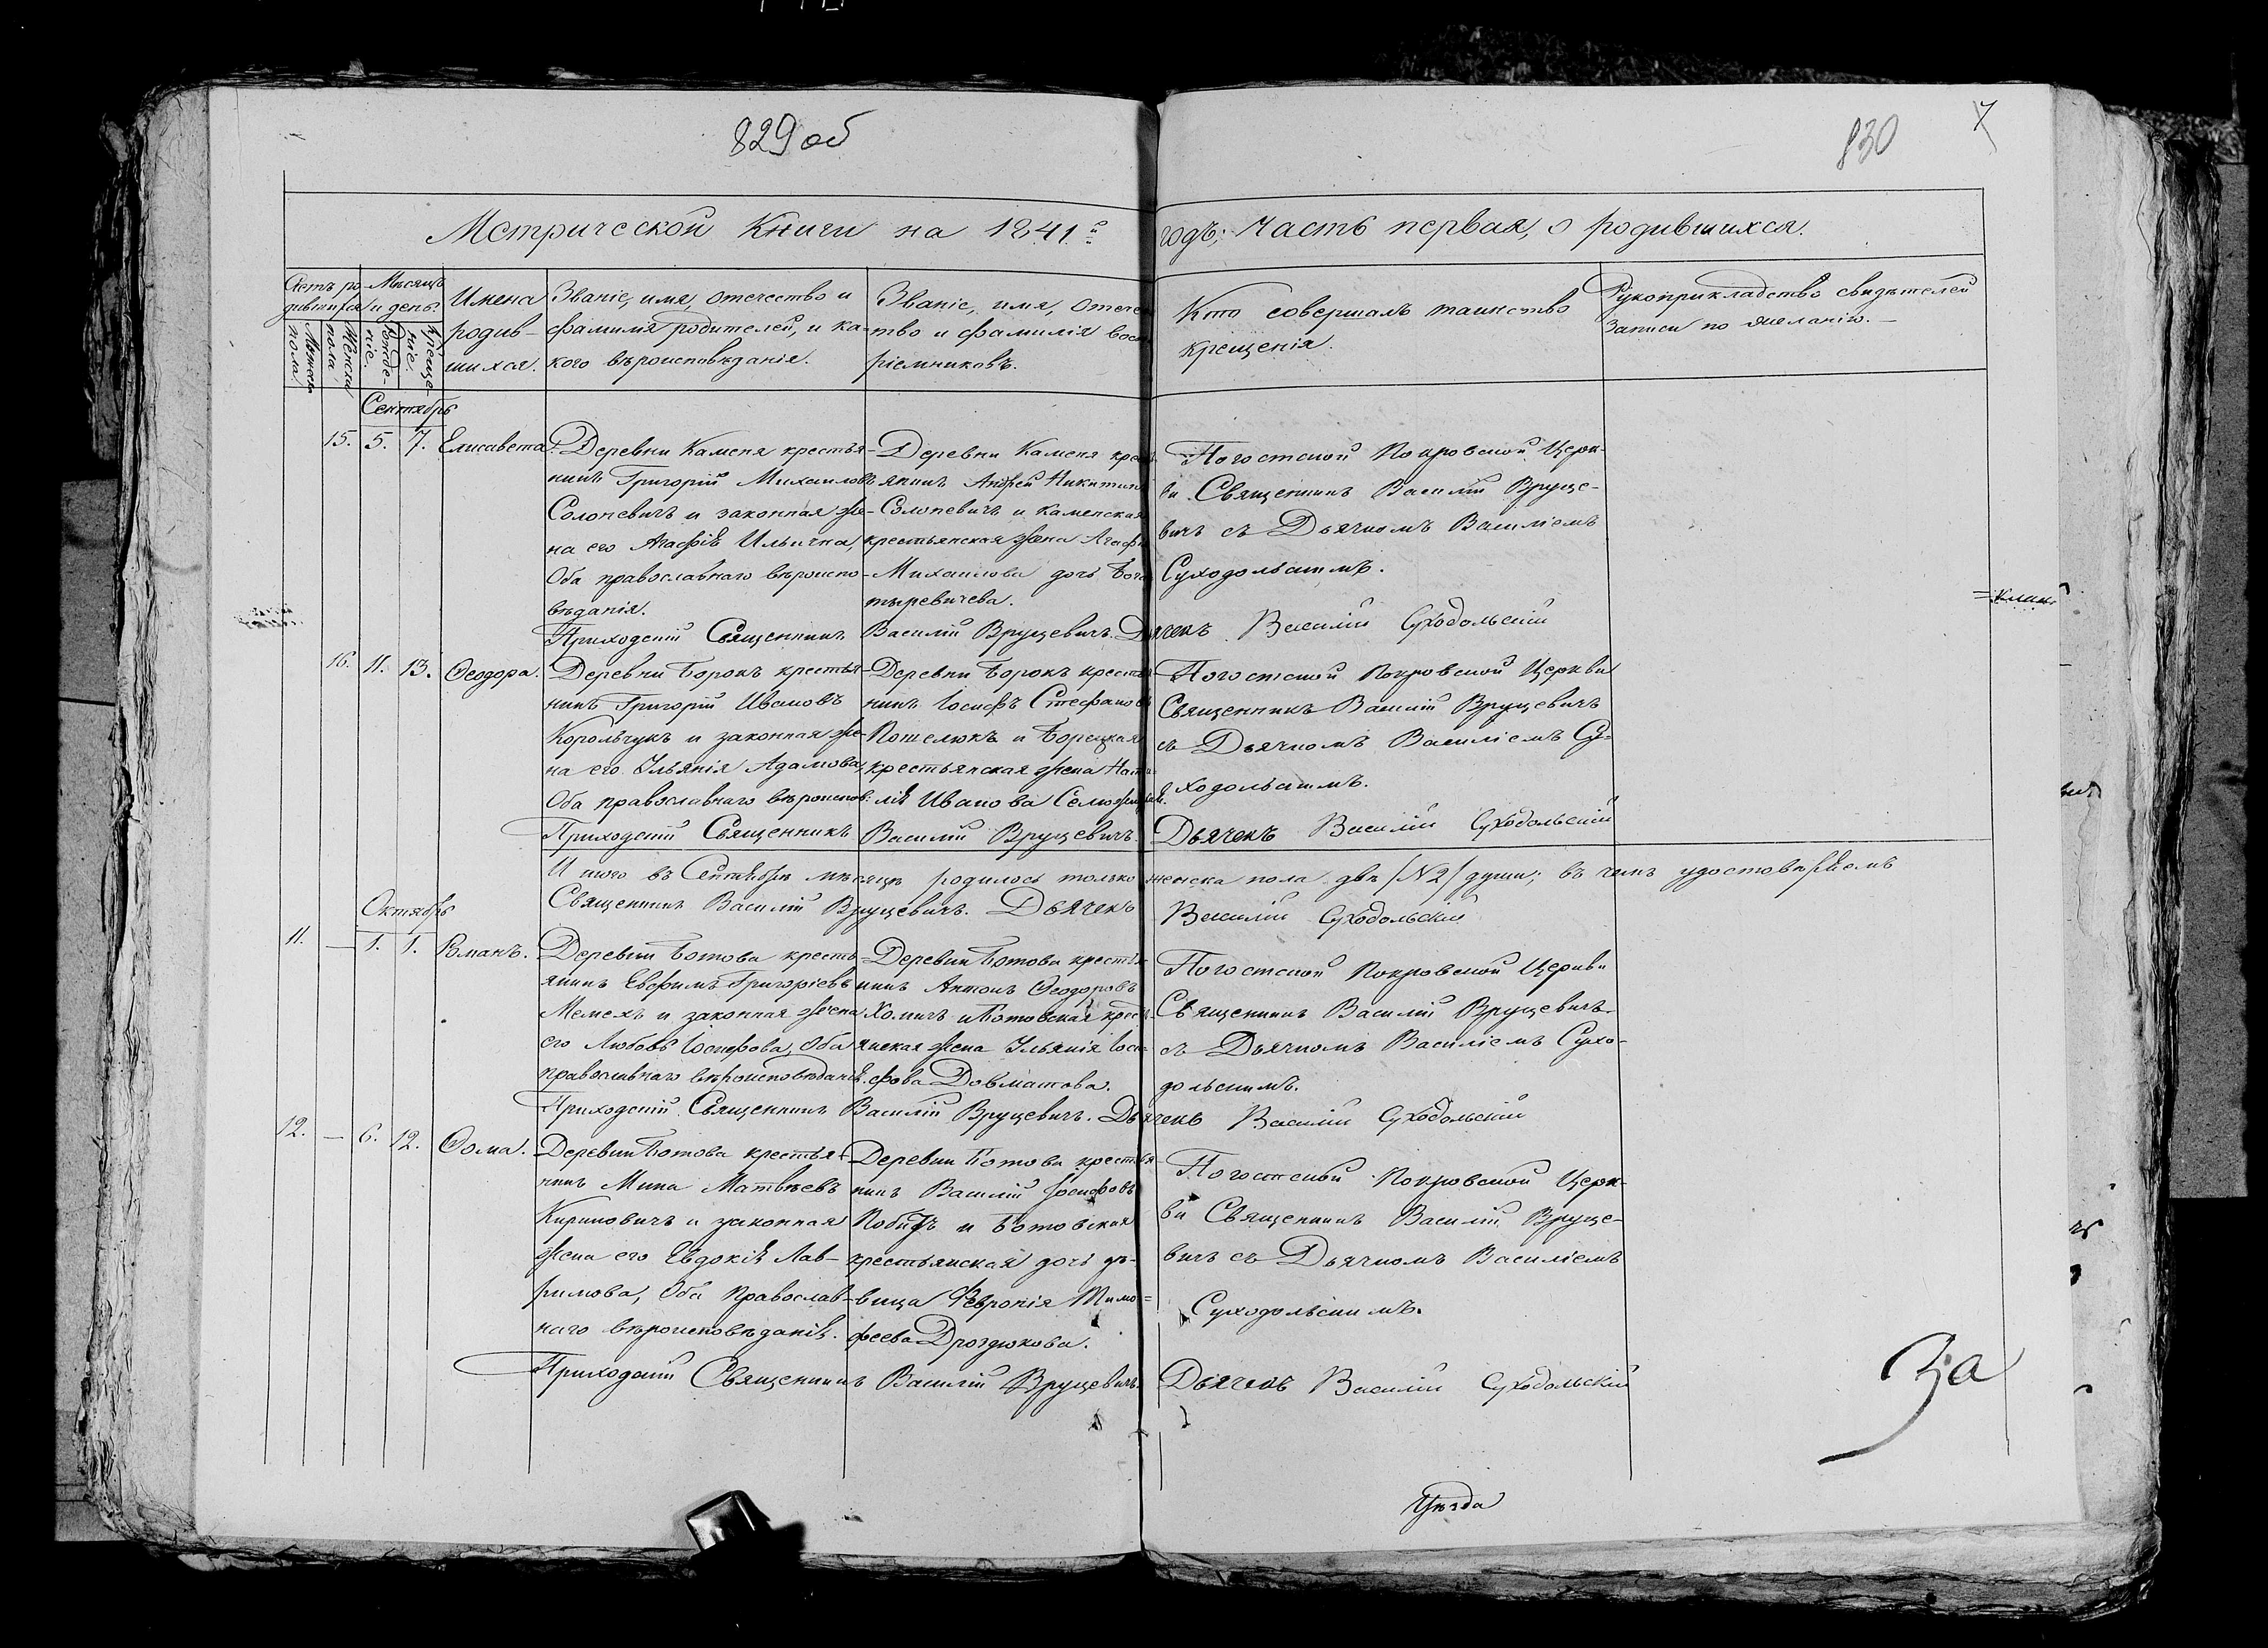 829 об
830
7
Метрической Книги на 1841й годъ; Часть первая, о родившихся.
Счетъ родившихся
Мужеска пола
Женска пола
Мѣсяцъ и день.
Рожденіе.
Крещеніе.
Имена
родив-
шихся.
Званіе, имя, отечество и
фамилія родителей, и ка-
кого вѣроисповѣданія.
Званіе, имя, отечес
тво и фамилія восп
ріемниковъ.
Кто совершалъ таинство
крещенія.
Рукоприкладство свидѣтелей
записи по желанію.
Сентябрь
15. 5. 7. Елисавета.
Деревни Каменя крестья-
нинъ Григорій Михаиловъ
Солоневичъ и законная же-
на его Агафія Ильична,
Оба православнаго вѣроиспо-
вѣданія.
Деревни Каменя крес
янинъ Андрей Никитинъ
Солоневичъ и каменская
крестьянская жена Агафі
Михаилова дочь Бога
тыревичева.
Погостской Покровской Церк-
ви Священникъ Василій Вруце-
вичъ съ Дьячкомъ Василіемъ
Суходольскимъ.
Приходскій Священникъ Василій Вруцевичъ. Дьячекъ Василій Суходольскій
16. 11. 13. Ѳеодора.
Деревни Борокъ крестья-
нинъ Григорій Ивановъ
Корольчукъ и законная же-
на его Ульянія Адамова,
Оба православнаго вѣроиспов:
Деревни Борокъ крестья
нинъ Іосифъ Стефановъ
Пошелюкъ и Борецкая
крестьянская жена Ната-
лія Иванова
Погостской Покровской Церкви
Священникъ Василій Вруцевичъ
съ Дьячкомъ Василіемъ Су-
ходольскимъ.
Приходскій Священникъ Василій Вруцевичъ. Дьячекъ Василій Суходольскій
Итого въ Сентябрѣ мѣсяцѣ родилось только женска пола двѣ /№2/ души; въ чемъ удостовѣряемъ
Священникъ Василій Вруцевичъ. Дьячекъ Василій Суходольскій
Октябрь
11. — 1. 1. Романъ.
Деревни Ботова кресть-
янинъ Евфимъ Григоріевъ
Мемехъ и законная жена
его Любовь Іосифова, Оба
православнаго вѣроисповѣданія.
Деревни Ботова крестья-
нинъ Антонъ Ѳеодоровъ
Хомичъ и Ботовская крест-
янская жена Ульянія Іоси-
фова Довматова.
Погостской Покровской Церкви
Священникъ Василій Вруцевичъ
съ Дьячкомъ Василіемъ Сухо-
дольскимъ.
Приходскій Священникъ Василій Вруцевичъ. Дьячекъ Василій Суходольскій
12. — 6. 12. Ѳома.
Деревни Ботова крестья-
нинъ Мина Матвѣевъ
Кириновичъ и законная
жена его Евдокія Лав-
римова, Оба Православ-
наго вѣроисповѣданія.
Деревни Ботова крестья-
нинъ Василій Іосифовъ
и Ботовская
крестьянская дочь дѣ-
вица Февронія Тимо-
феева Дроздюкова.
Погостской Покровской Церк-
ви Священникъ Василій Вруце-
вичъ съ Дьячкомъ Василіемъ
Суходольскимъ.
Приходскій Священникъ Василій Вруцевичъ. Дьячекъ Василій Суходольскій
За
Уѣзда